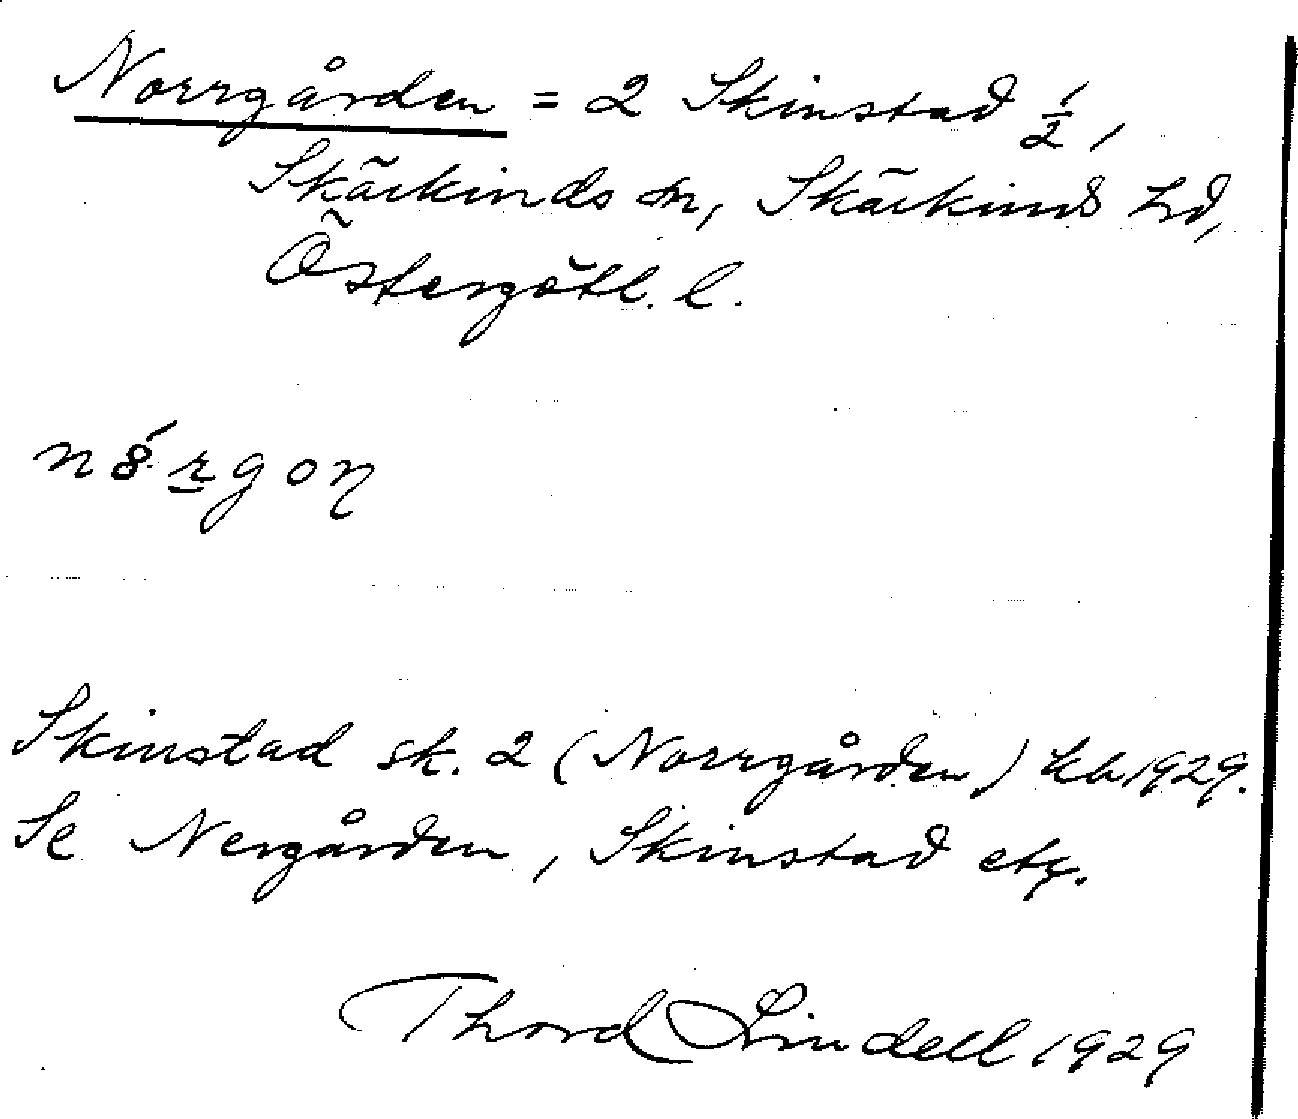 Norrgården = 2 Skinstad 1/2,
Skärkinds sn, Skärkinds hd,
Östergötl. l.
Skinstad sk. 2 (Norrgården) kb 1929.
Se Nergården, Skinstad etc.
Thord Lindell 1929